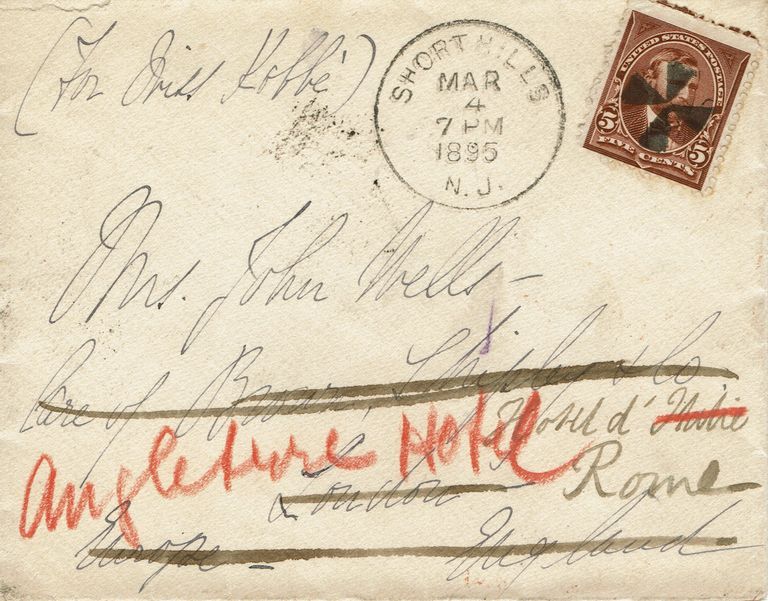 (For Miss Kobbé)
SHORT HILLS
MAR
4
7 PM
1895
N. J.
UNITED STATES POSTAGE
5 5
FIVE CENTS
Mrs. John Wells—
Care of Brown, Shipley & Co
Hotel d'Italie
Angleterre Hotel
London
Rome
Europe — England